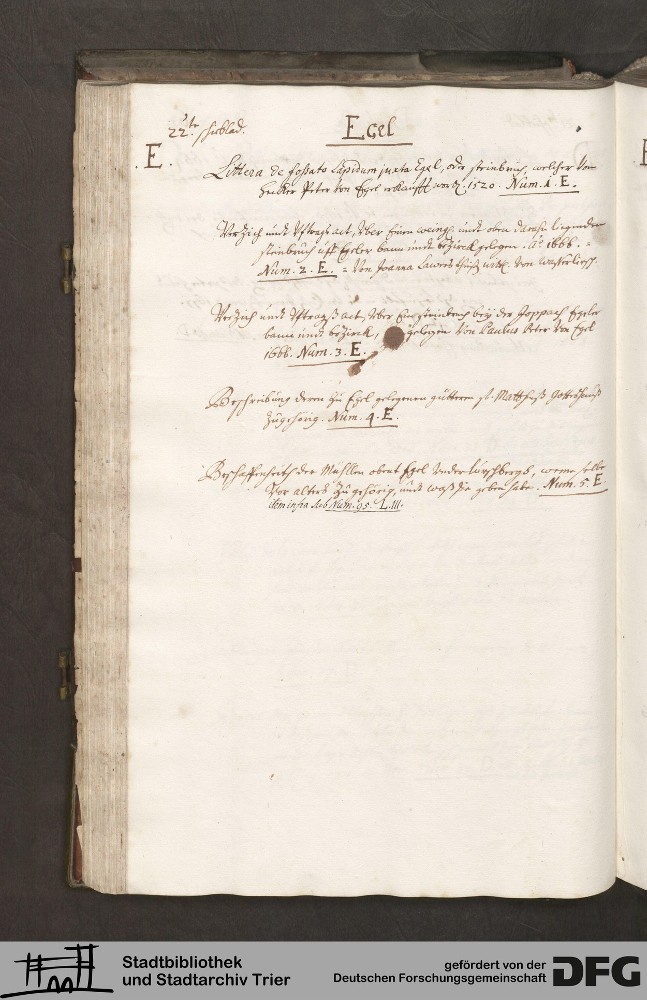 22.te schublad.
Egel
.E.
Littera de fossato Lapidum juxta Egel, oder steinbruch, welcher von
Peter von Egel erkaufft 1520. Num. 1. E.
Verzich undt Uftrags act, uber einen weing. undt oben daran liegenden
steinbruch uff Egeler bann undt bezirck gelegen. Ao. 1666. =
Num. 2. E. = von Joanna von
Verzich undt Uftragß act, uber ein steinbruch bey der Egeler
bann undt bezirck, gelegen von Paulus Peter von Egel
1666. Num. 3. E.
Beschreibung deren zu Egel gelegenen gütteren st. Matthyß Gotteshauß
zugehörig. Num. 4. E.
Beschaffenheith der Mühllen obent Egel under, weme selbe
vor alters zugehörig, undt waß sie geben habe. Num. 5. E.
item infra sub Num. 95. L. III.
Stadtbibliothek
und Stadtarchiv Trier
gefördert von der
Deutschen Forschungsgemeinschaft
DFG